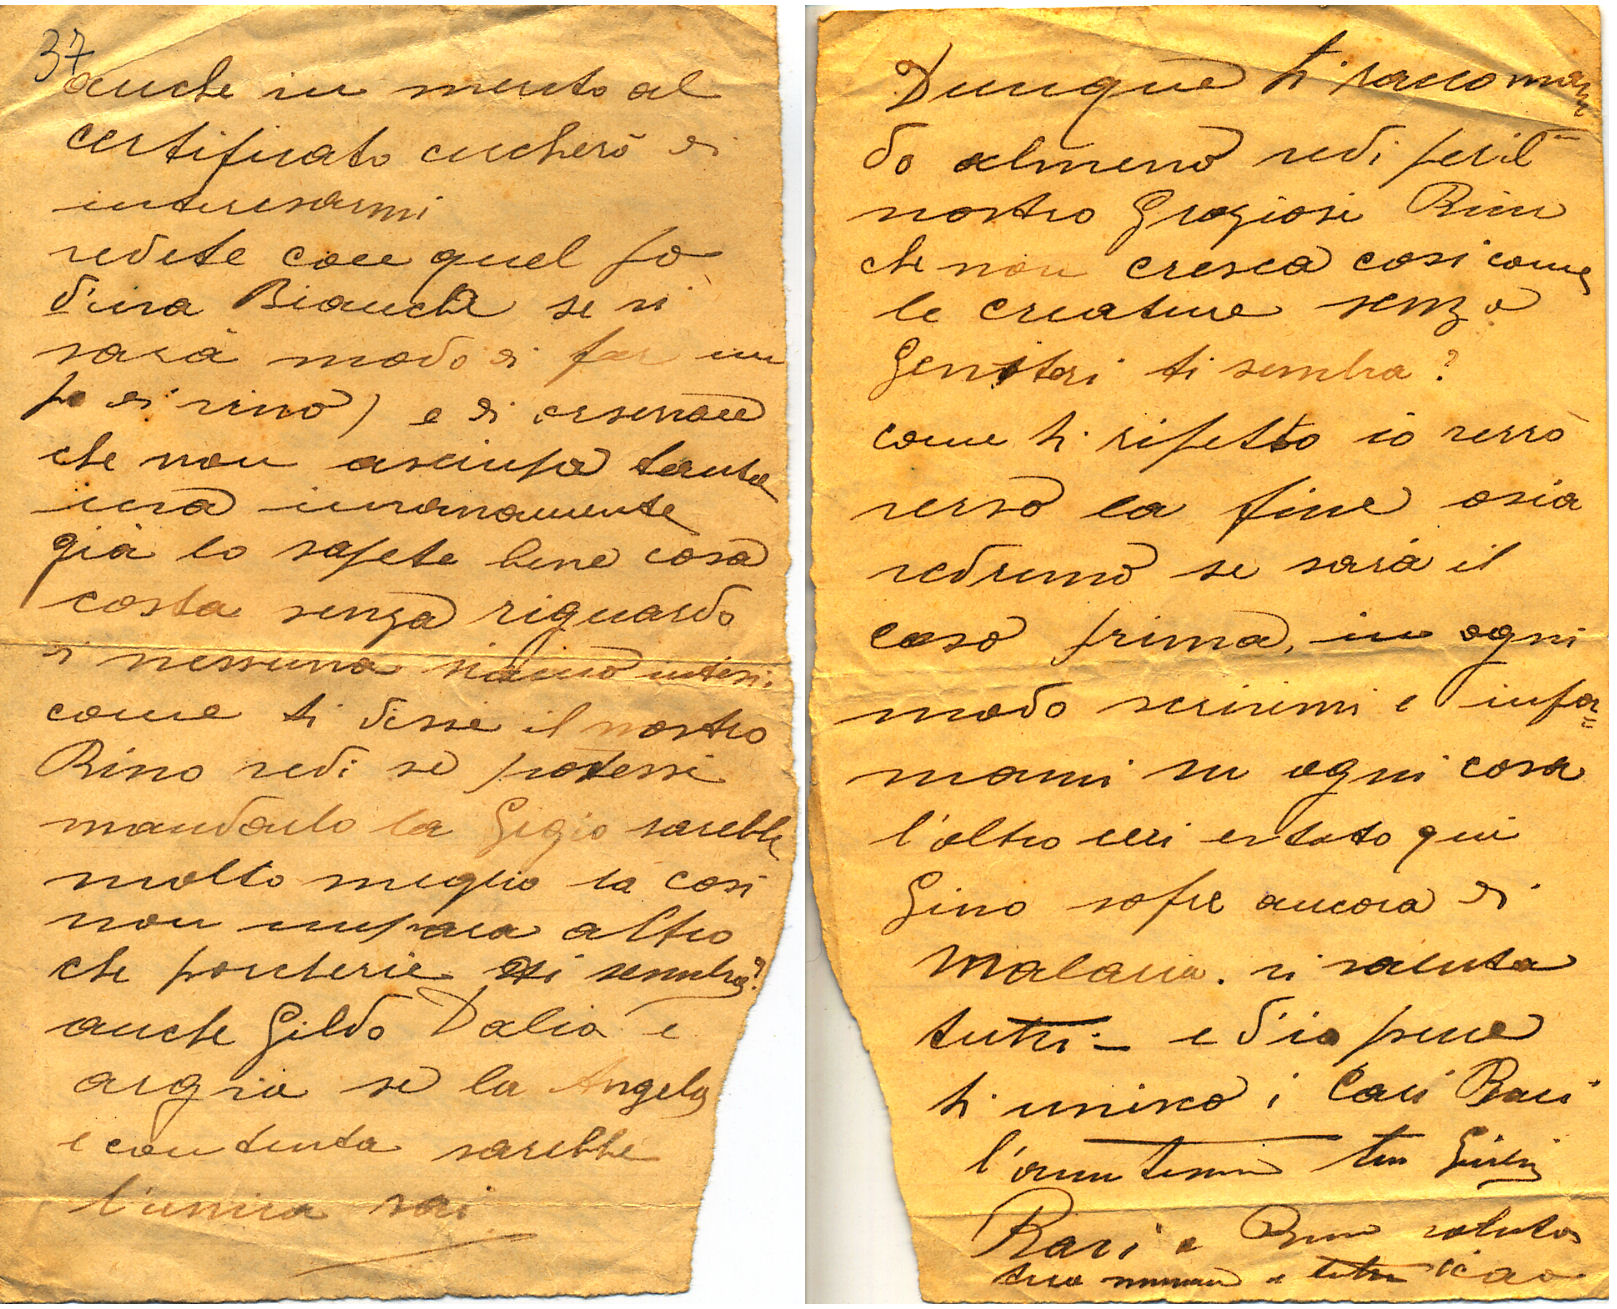 37
anche in merito al
certificato cercherò di
interesarmi
vedete con quel po
d'uva Bianca se vi
sarà modo di far un
po di vino) e di osservare
che non asciupa tanta
uva invanamente
già lo sapete bene cosa
costa senza riguardo
di nessuna siamo intesi.
come ti dissi il nostro
Rino vedi se potessi
mandarlo la Gigio sarebbe
molto meglio la cosi
non impara altro
che porcherie ti sembra?
anche Gildo Dalia e
argia se la Angela
e contenta sarebbe
l'unica sai
Dunque ti raccoman
do almeno vedi per il
nostro Grazioso Rino
che non cresca cosi come
le creature senza
Genitori ti sembra?
come ti ripetto io verrò
verso la fine osia
vedremo se sarà il
caso prima, in ogni
modo scrivimi e infor=
mami su ogni cosa
l'altro ieri e stato qui
Gino sofre ancora di
Malaria. vi saluta
tutti – ed io pure
ti unisco i Cari Baci
l'amatissimo tuo
Baci a Rino saluta
tua mamma e tutti ciao